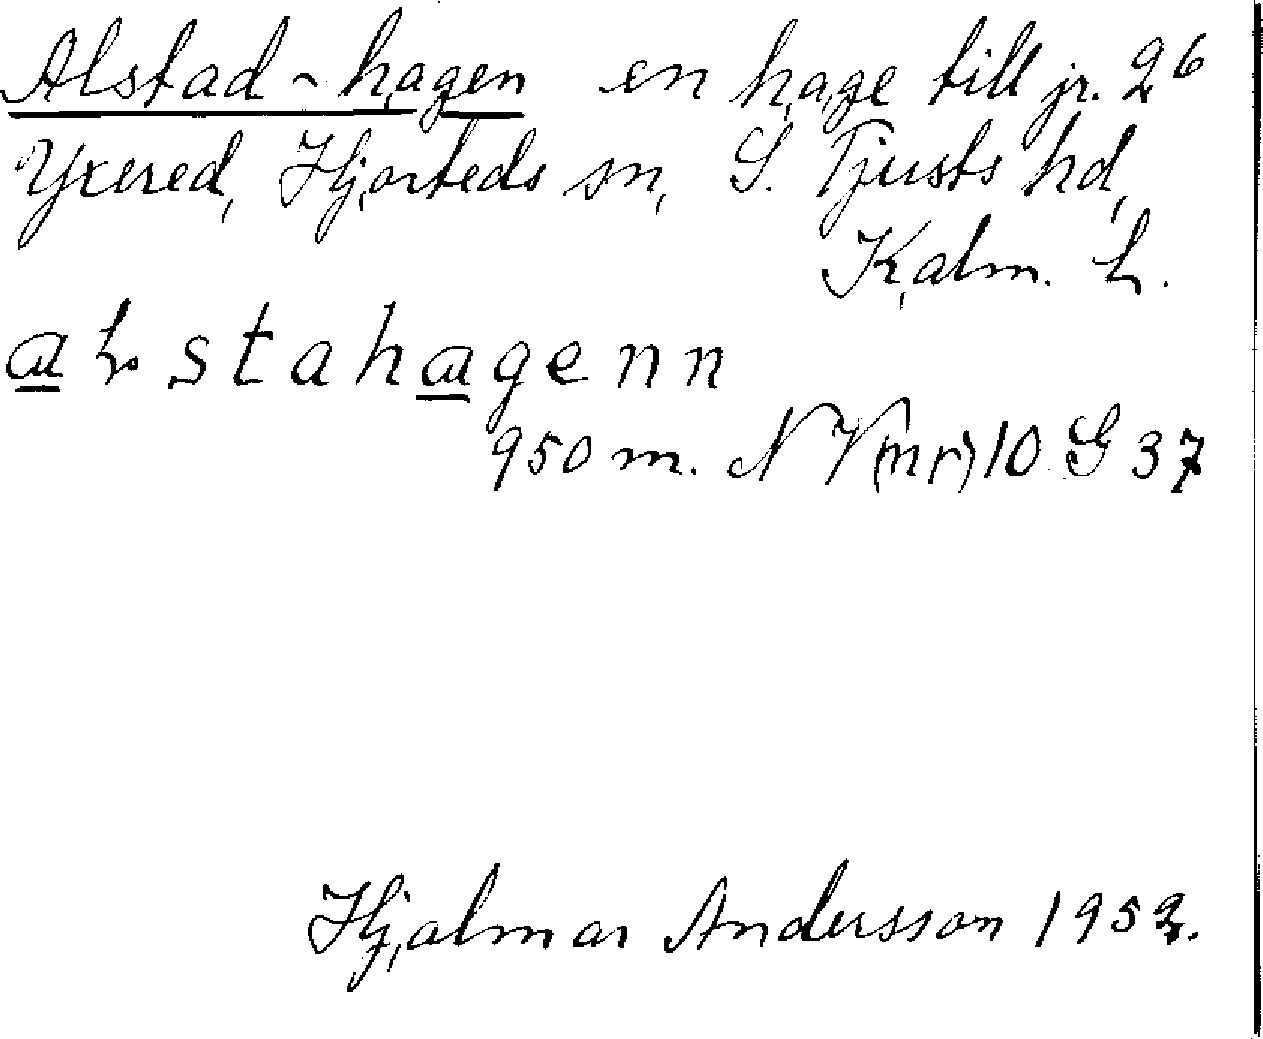 Alstad-hagen en hage till jr. 26
Yxered, Hjorteds sn, S. Tjusts hd,
Kalm. L.
stahagenn
950 m. N V (nr) 10 G 37
Hjalmar Andersson 1952.